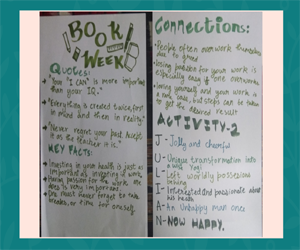 BOOK
WEEK
QUOTES:
Your "I CAN" is more important
than your IQ."
"Everything is created twice, first
in mind and then in reality."
"Never regret your past. Accept
it as the teacher it is."
KEY FACTS:
Investing in your health is just as
important as investing in work.
Having passion for the work, one
does is very important.
One must never forget to take
breaks, or time for oneself.
Connections:
People often overwork themselves
due to greed
Losing passion for your work is
especially easy if one overworks
Losing yourself and your work is
a rare case, but steps can be taken
to get the desired result
ACTIVITY-2
J - Jolly and cheerful
U - Unique transformation into
a Yogi
L - Left worldly possessions
I - Interested and passionate about
his health
A - An unhappy man once
N - NOW HAPPY.